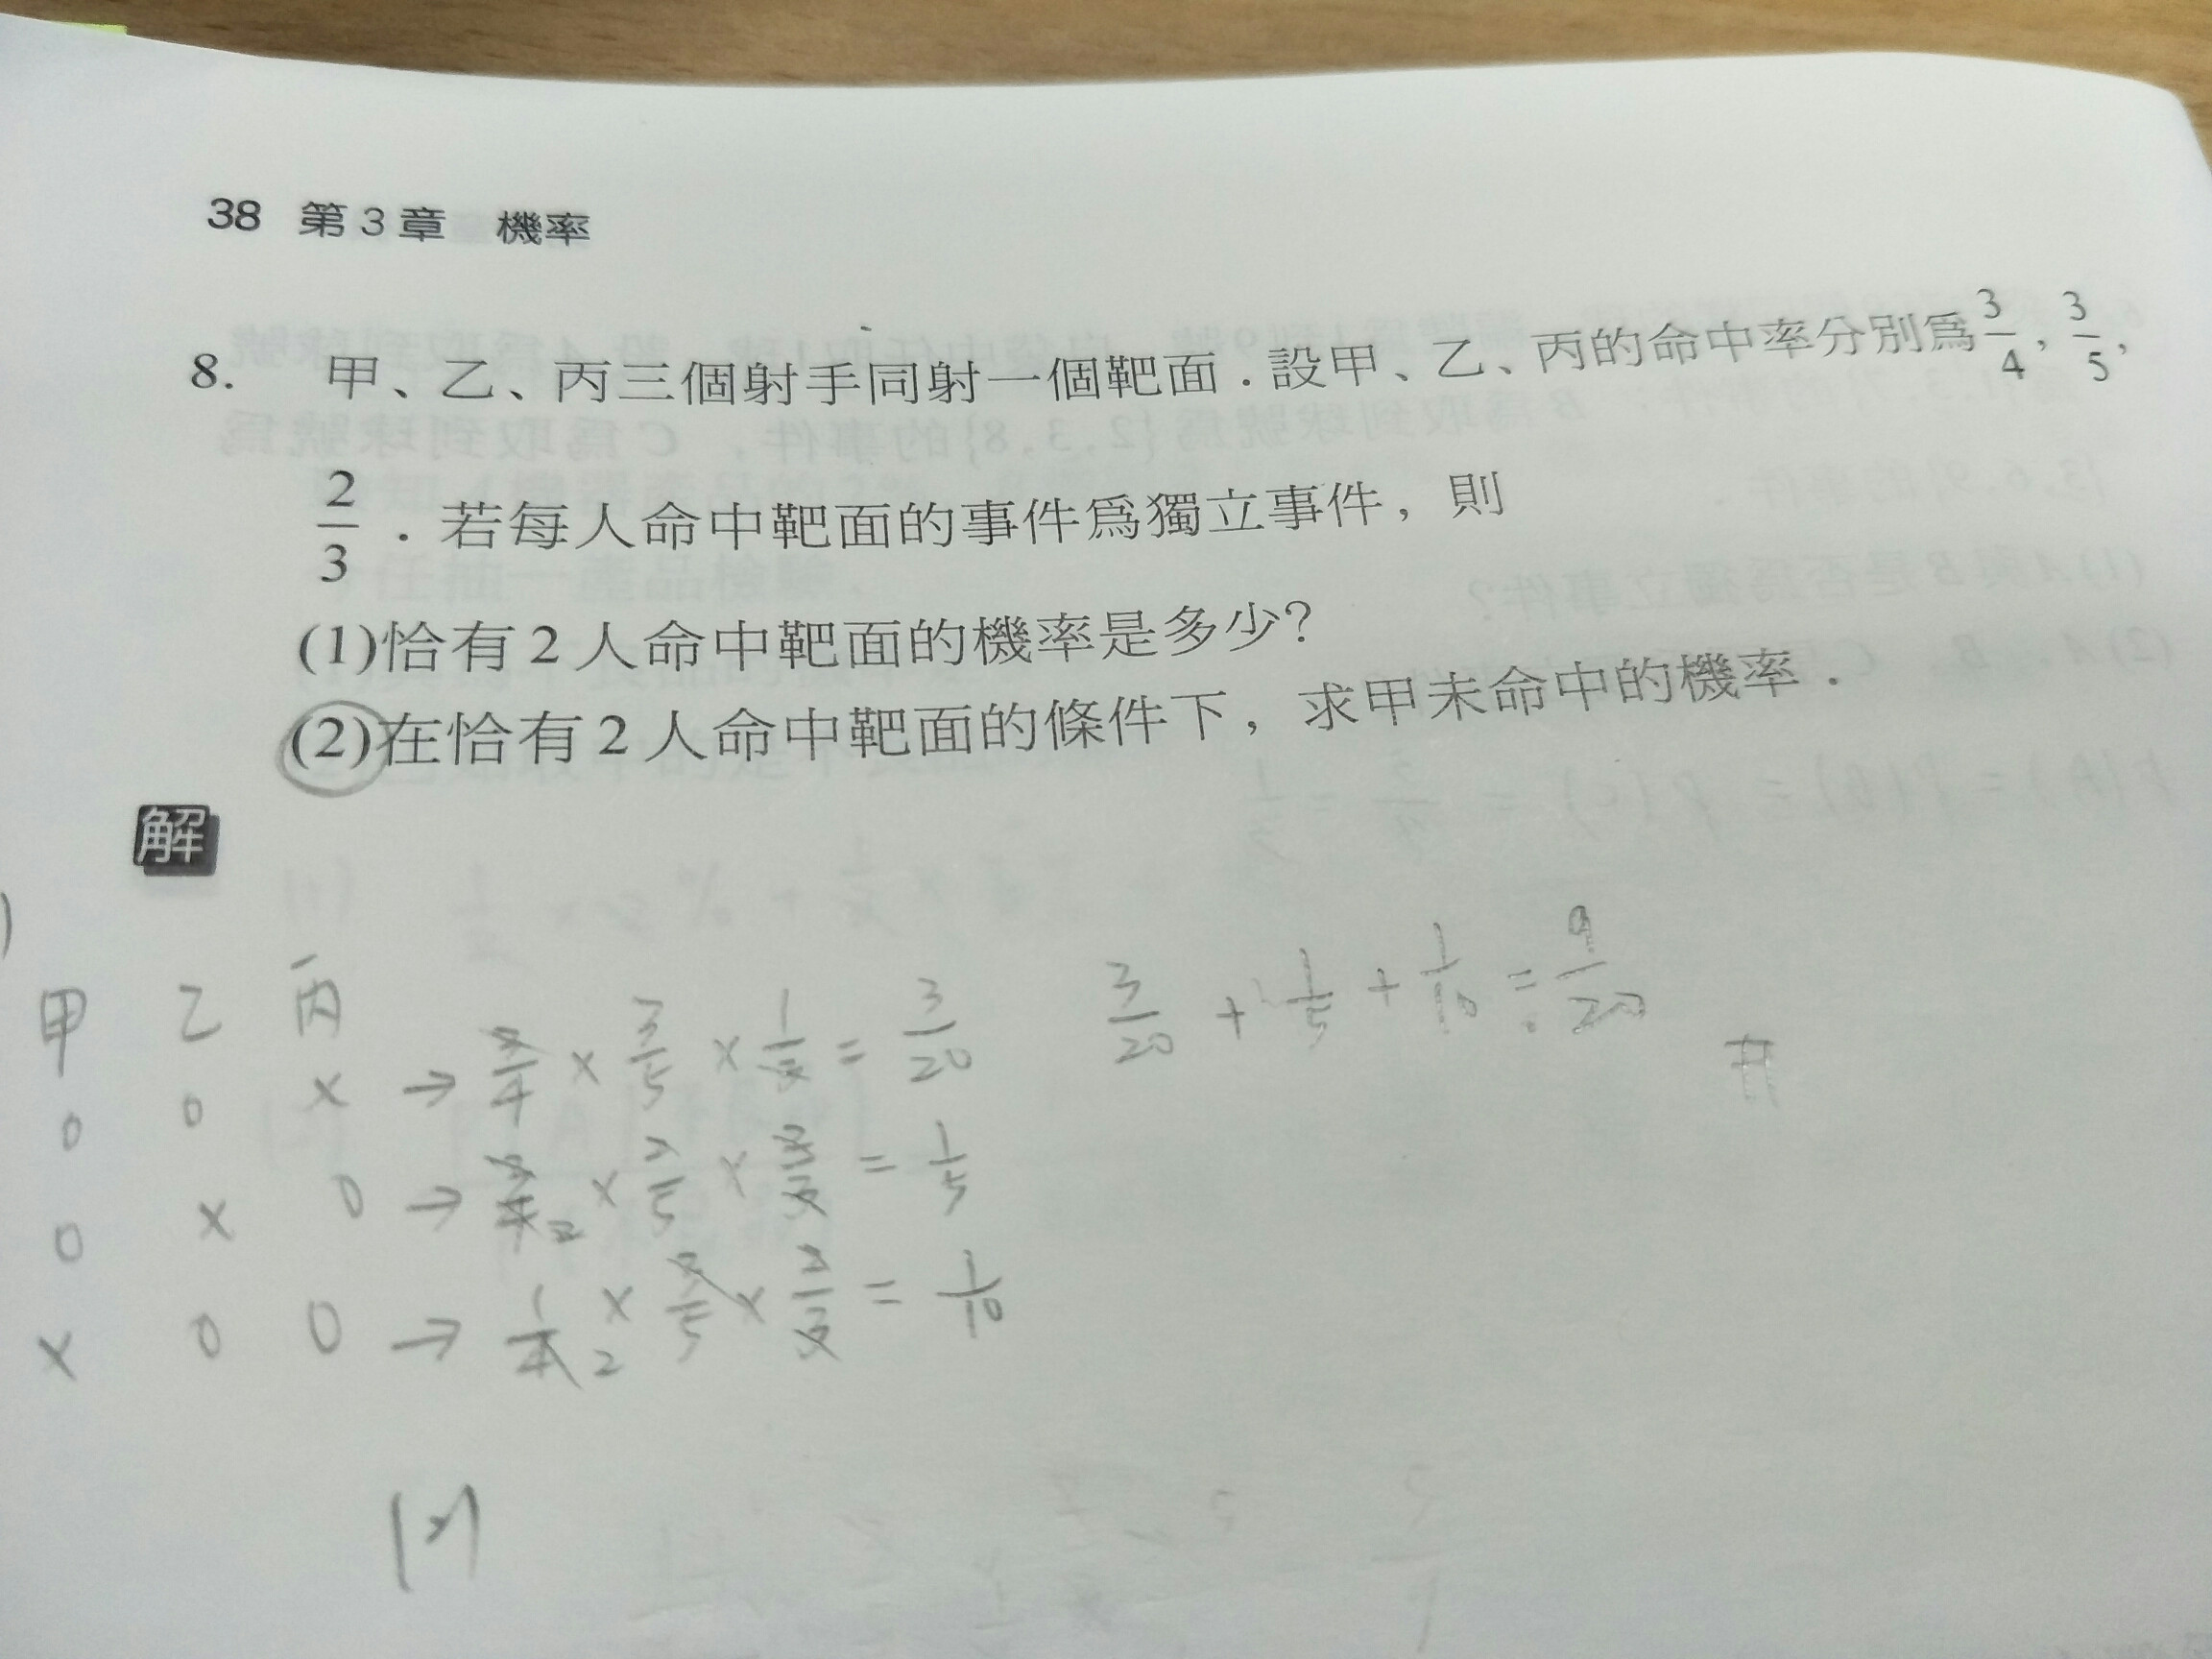 38 第3章 機率
8. 甲、乙、丙三個射手同射一個靶面．設甲、乙、丙的命中率分別為3/4，3/5，
2/3．若每人命中靶面的事件為獨立事件，則
(1)恰有2人命中靶面的機率是多少？
(2)在恰有2人命中靶面的條件下，求甲未命中的機率．
解
)
甲 乙 丙
0 0 × → 3/4 × 3/5 × 1/3 = 3/20 3/20 + 1/5 + 1/10 = 9/20 #
0 × 0 → 3/4 2 × 2/5 × 2/3 = 1/5
× 0 0 → 1/4 2 × 3/5 × 2/3 = 1/10
(2)